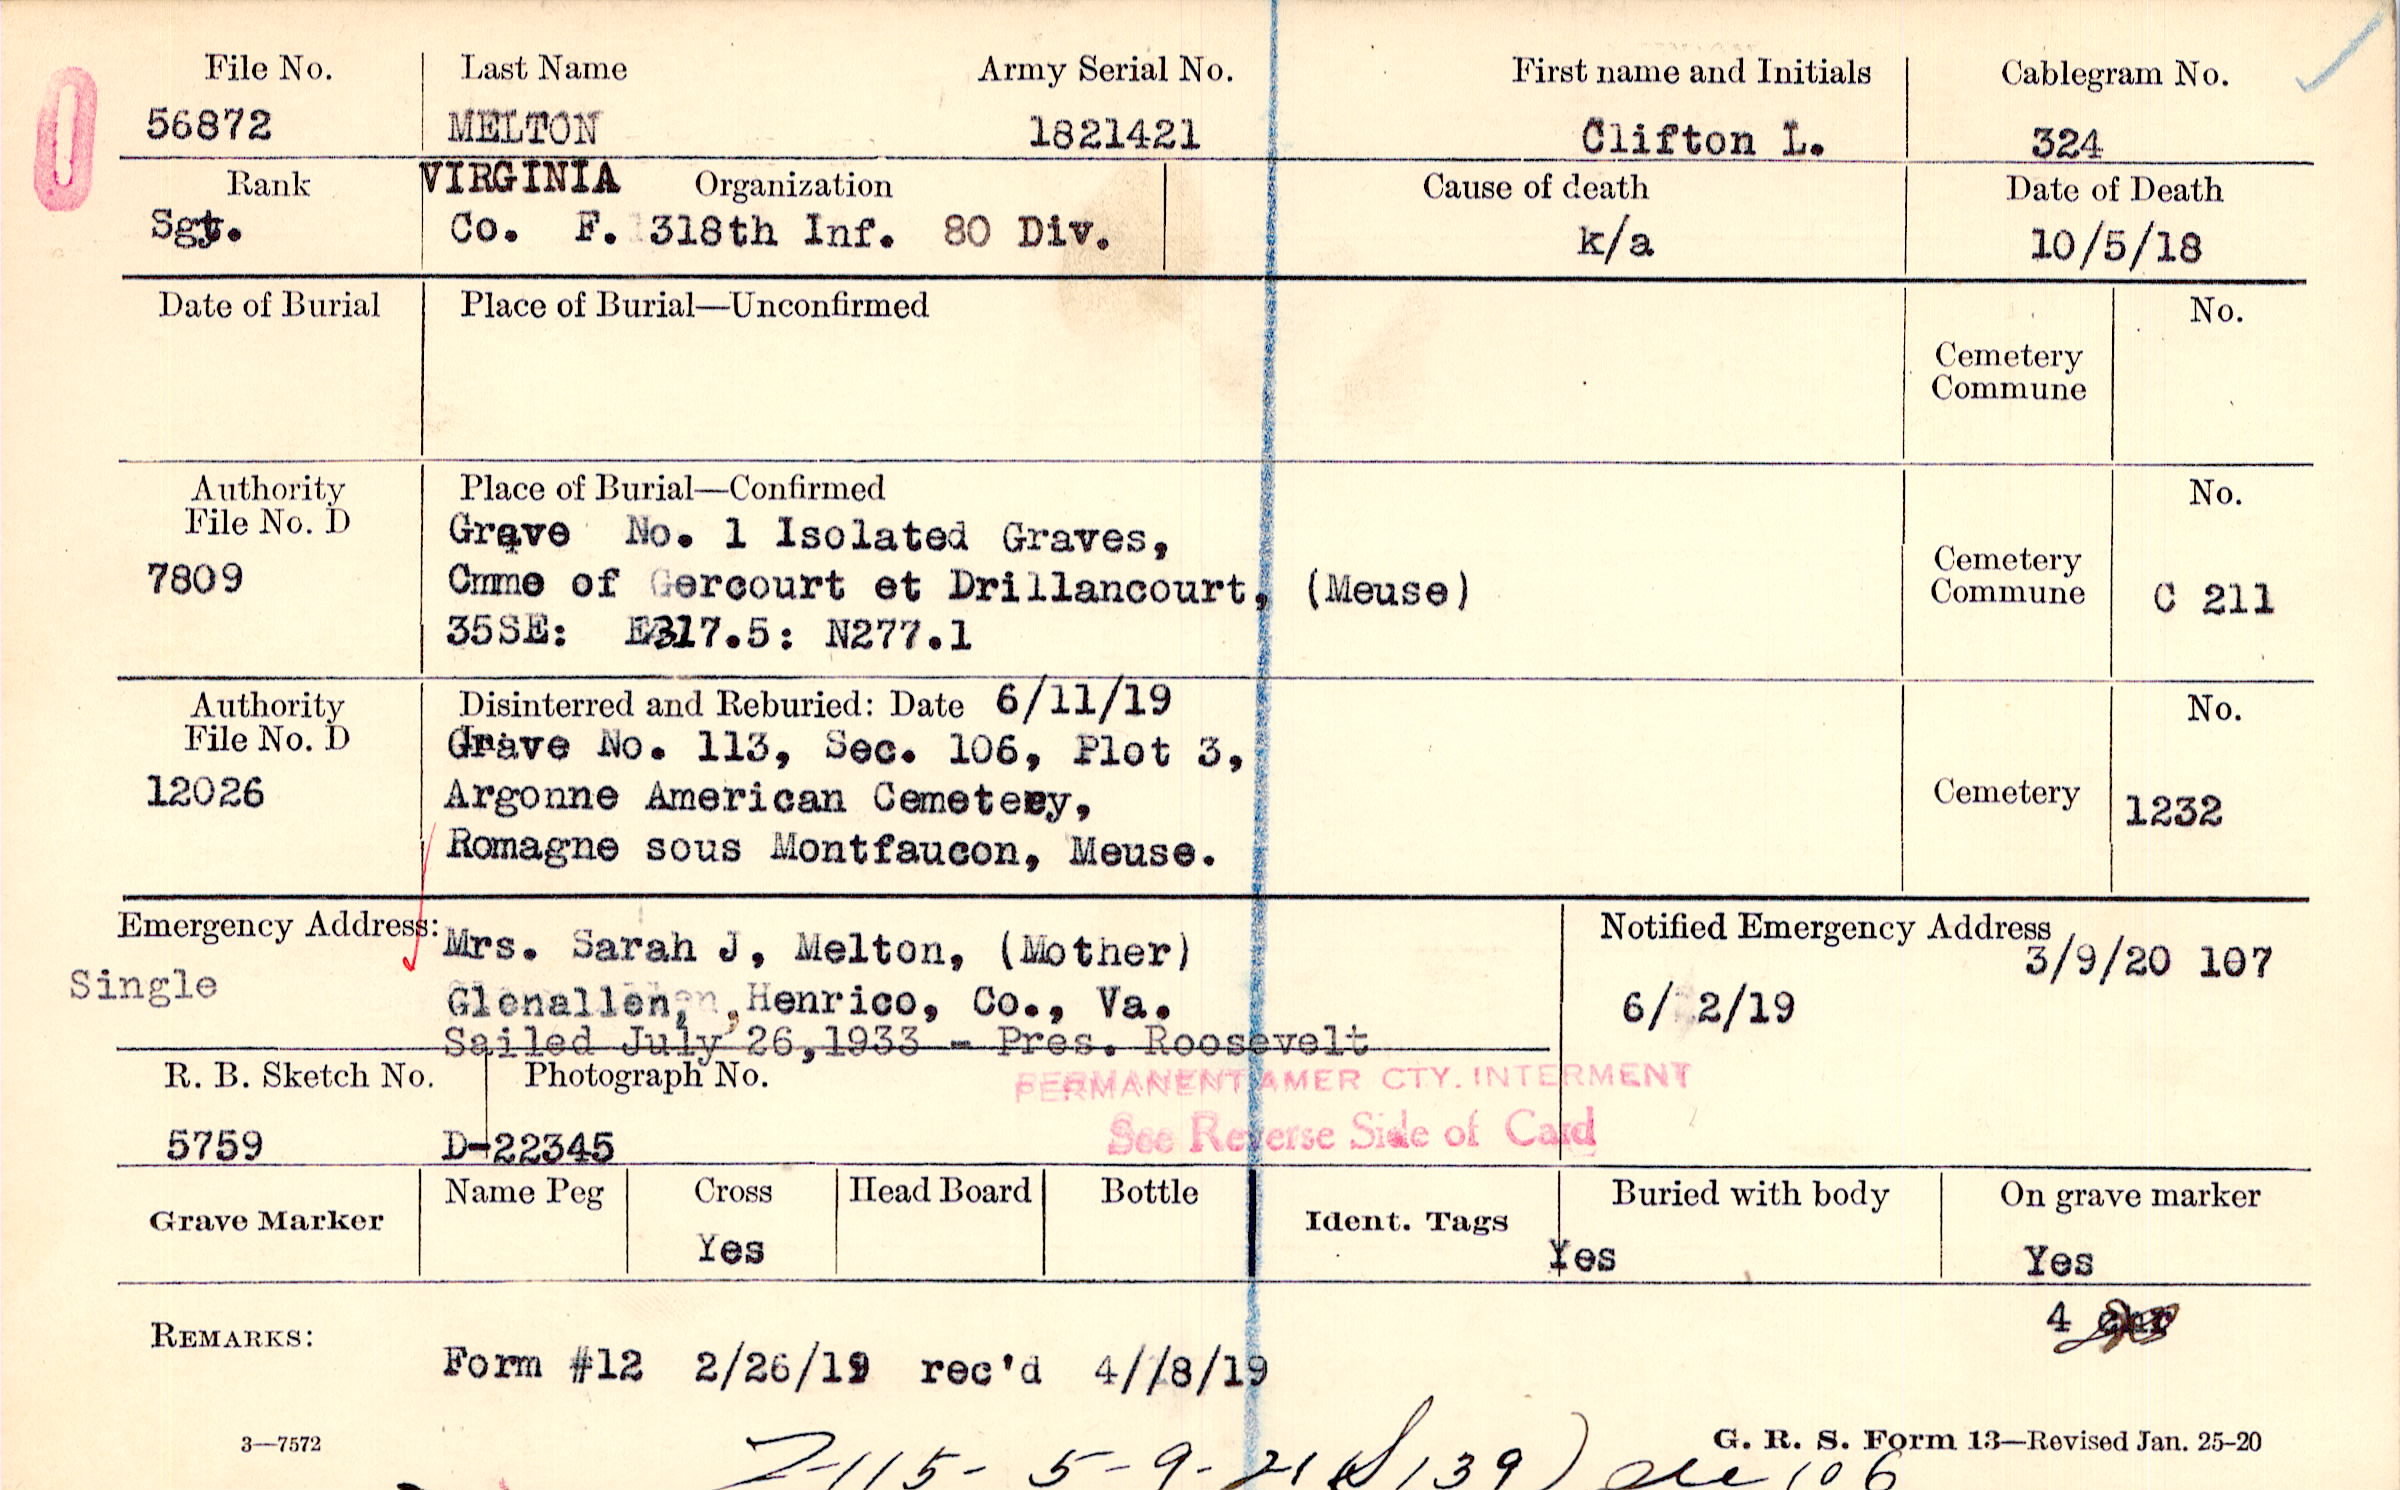 File No. Last Name Army Serial No. First name and Initials Cablegram No.
56872 MELTON 1821421 Clifton L. 324
Rank VIRGINIA Organization Cause of death Date of Death
Sgt. Co. F. 318th Inf. 80 Div. k/a 10/5/18
Date of Burial Place of Burial—Unconfirmed No.
Cemetery
Commune
Authority Place of Burial—Confirmed No.
File No. D Grave No. 1 Isolated Graves,
7809 Cmme of Gercourt et Drillancourt, (Meuse) Cemetery
Commune C 211
35SE: E317.5: N277.1
Authority Disinterred and Reburied: Date 6/11/19 No.
File No. D Grave No. 113, Sec. 106, Plot 3,
12026 Argonne American Cemetery, Cemetery 1232
Romagne sous Montfaucon, Meuse.
Emergency Address: Mrs. Sarah J, Melton, (Mother) Notified Emergency Address
Single 3/9/20 107
Glenallen, Henrico, Co., Va. 6/ 2/19
Sailed July 26,1933 - Pres. Roosevelt
R. B. Sketch No. Photograph No. PERMANENT AMER CTY. INTERMENT
See Reverse Side of Card
5759 D-22345
Grave Marker Name Peg Cross Head Board Bottle Ident. Tags Buried with body On grave marker
Yes Yes Yes
4
REMARKS:
Form #12 2/26/19 rec'd 4//8/19
3—7572 G. R. S. Form 13—Revised Jan. 25-20
5-9-21 139) 106